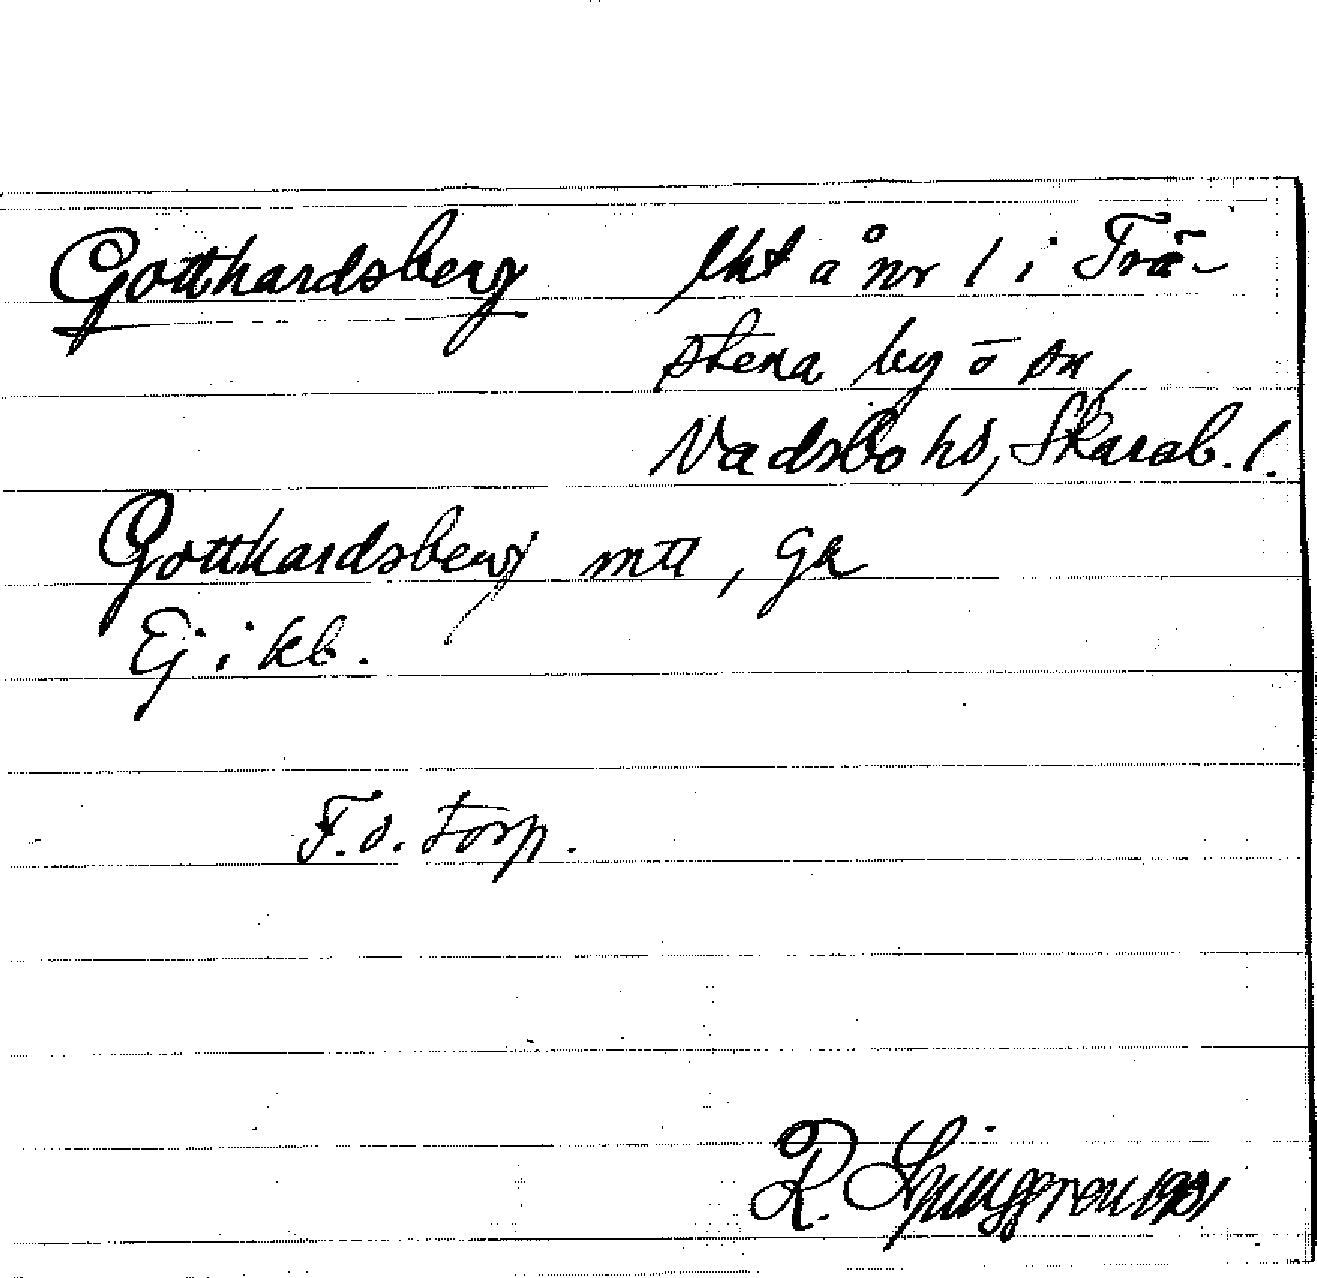 Gotthardsberg lht å nr 1 i Trä-
stena by o sn,
Vadsbo hd, Skarab. l.
Gotthardsberg mtl, Gk
Ej i kb.
F.d. torp.
R. Ljunggren 1931